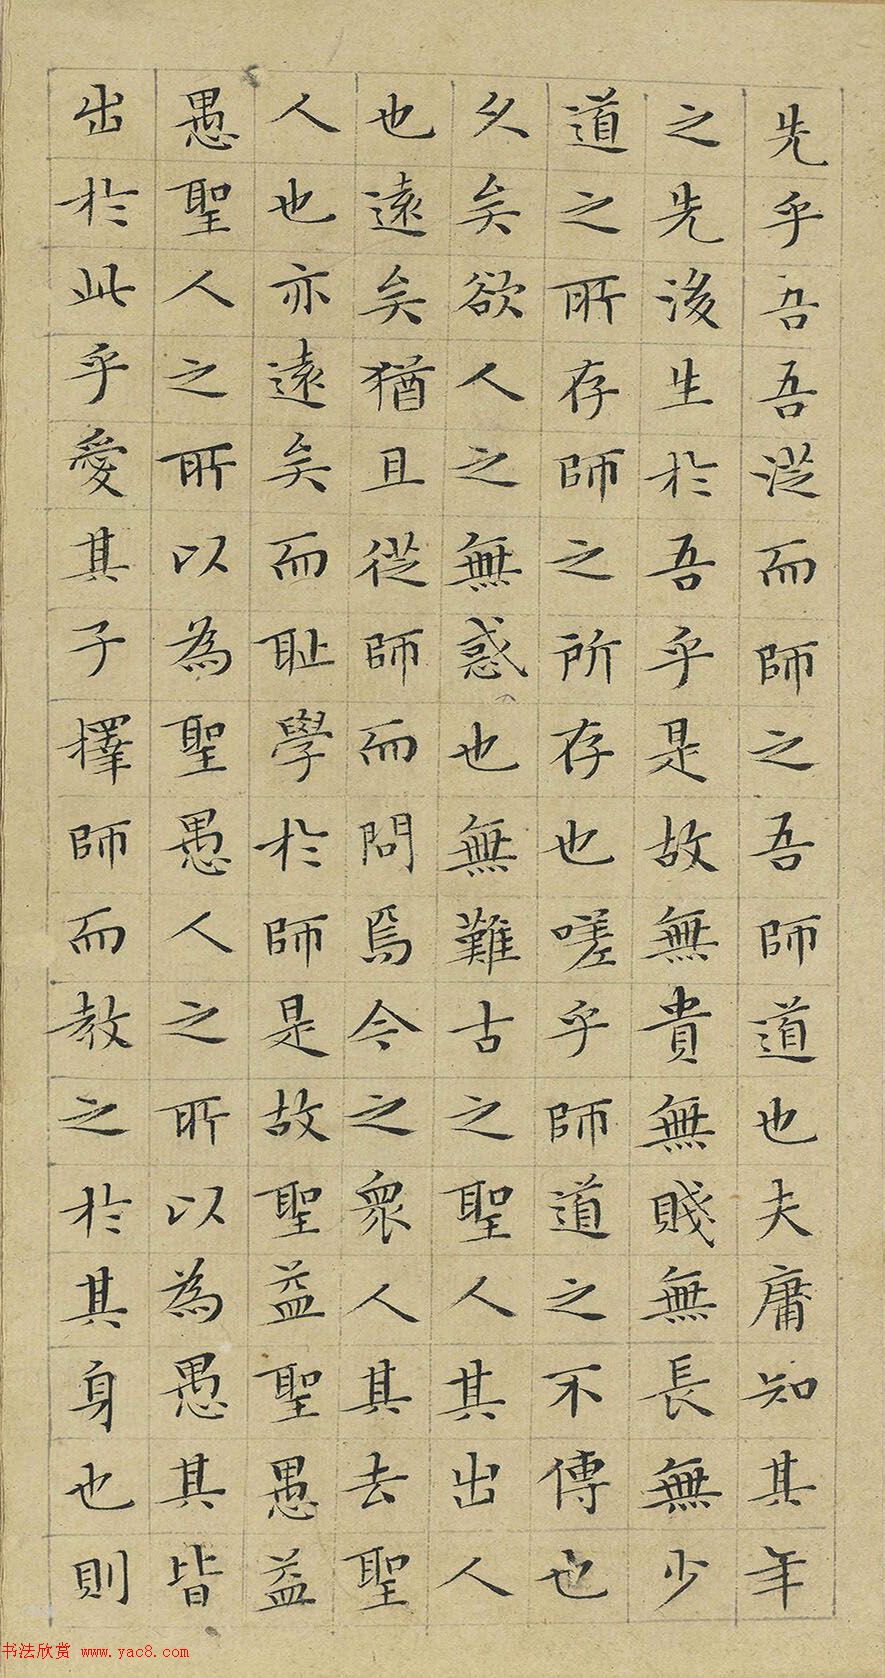 先乎吾吾從而師之吾師道也夫庸知其年
之先後生於吾乎是故無貴無賤無長無少
道之所存師之所存也嗟乎師道之不傳也
久矣欲人之無惑也無難古之聖人其出人
也遠矣猶且從師而問焉今之衆人其去聖
人也亦遠矣而耻學於師是故聖益聖愚益
愚聖人之所以為聖愚人之所以為愚其皆
出於此乎愛其子擇師而教之於其身也則
书法欣赏 www.yac8.com